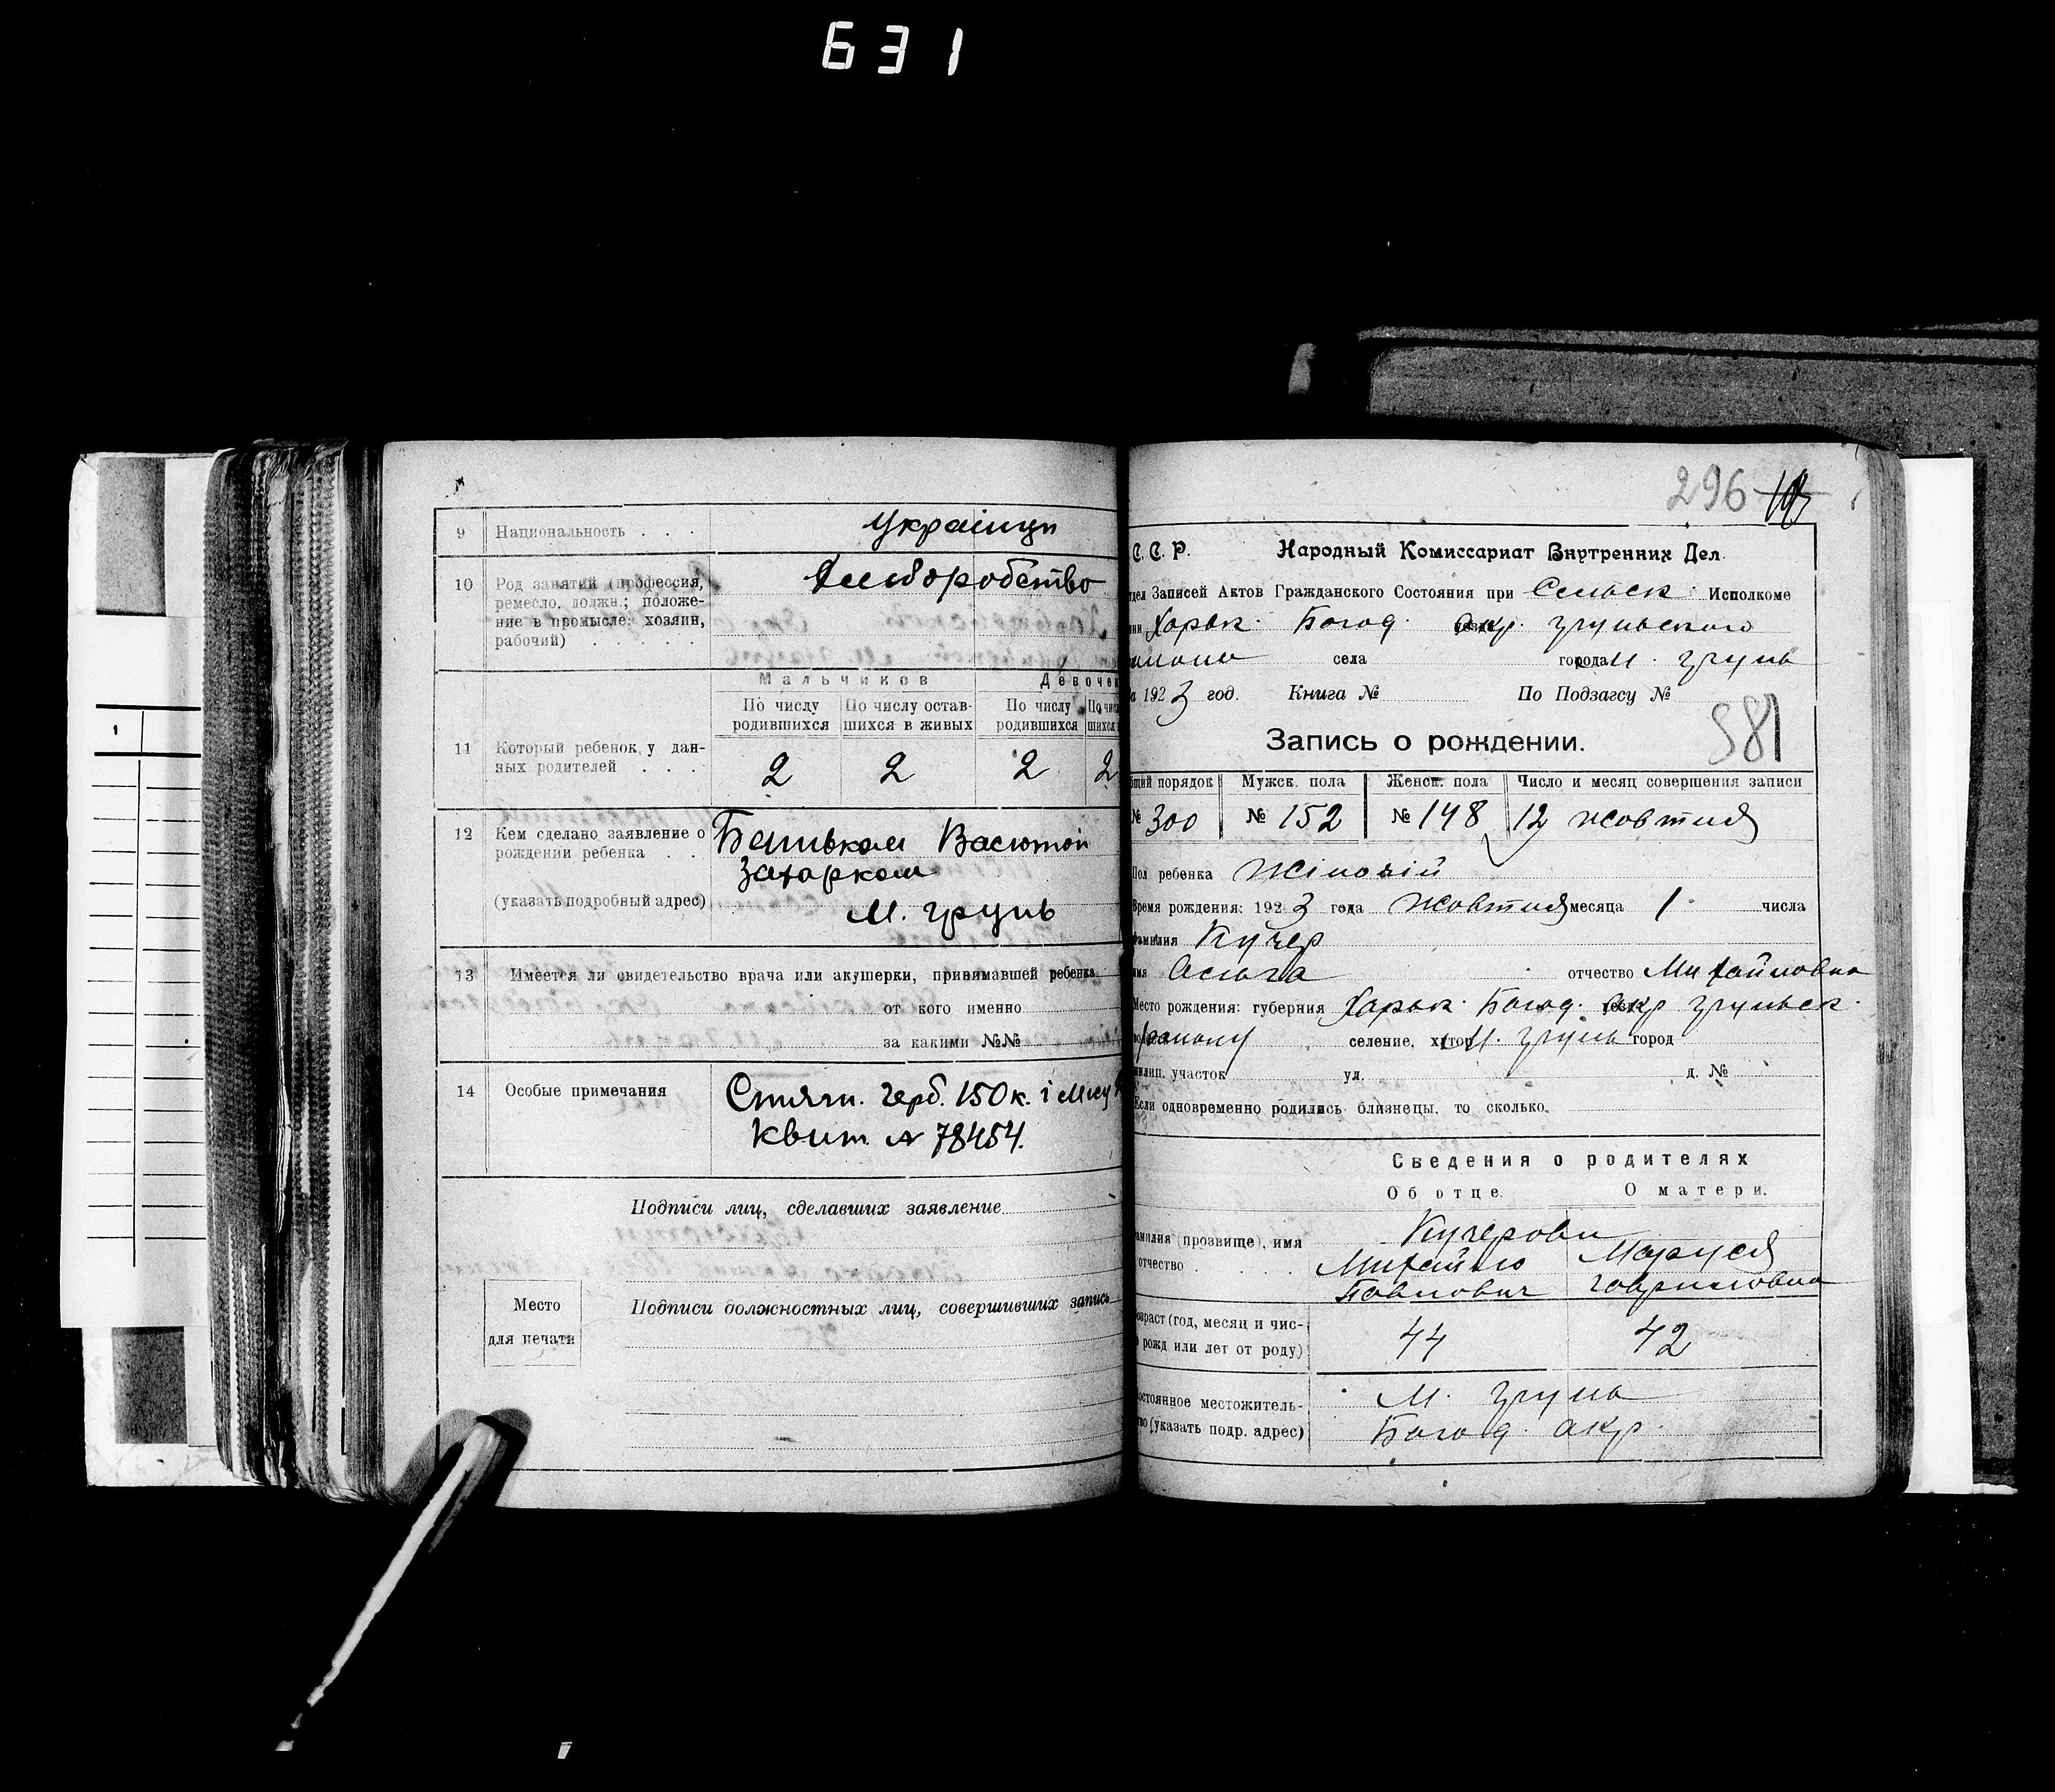 631
9 Национальность . . . Українци
10 Род занятий (профессия, ремесло, должн.; положение в промысле: хозяин, рабочий) . . . . Хлиборобство
Мальчиков Девочек
По числу родившихся По числу оставшихся в живых По числу родившихся По чис
11 Который ребенок у данных родителей . . . 2 2 2 2
12 Кем сделано заявление о рождении ребенка . . Батьком Васютой
Захарком
(указать подробный адрес) М. Грунь
13 Имеется ли свидетельство врача или акушерки, принимавшей ребенка
от кого именно
за какими №№
14 Особые примечания Стягн. герб. 150 к. і
Квит. № 78454.
Подписи лиц, сделавших заявление
Место для печати
Подписи должностных лиц, совершивших запись
296
С. С. Р. Народный Комиссариат Внутренних Дел.
Записей Актов Гражданского Состояния при Сельск. Исполкоме
Харьк. Богод. окр. Груньского
села города м. Грунь
1923 год. Книга № По Подзагсу №
381
Запись о рождении.
порядок Мужск. пола Женск. пола Число и месяц совершения записи
№ 300 № 152 № 148 12 жовтня
Пол ребенка Жіночій
Время рождения: 1923 года Жовтня месяца 1 числа
Фамилия Кучер
Имя Ольга отчество Михайловна
Место рождения: губерния Харьк. Богод. окр. Груньск.
району селение, хутор М. Грунь город
участок ул. д. №
Если одновременно родились близнецы, то сколько
Сведения о родителях
Об отце. О матери.
Фамилия (прозвище), имя Кучерови
отчество . . . . Михайло Маруся
Павлович Гавриловна
Возраст (год, месяц и число рожд или лет от роду) 44 42
Постоянное местожительство (указать подр. адрес) М. Грунь
Богод. окр.